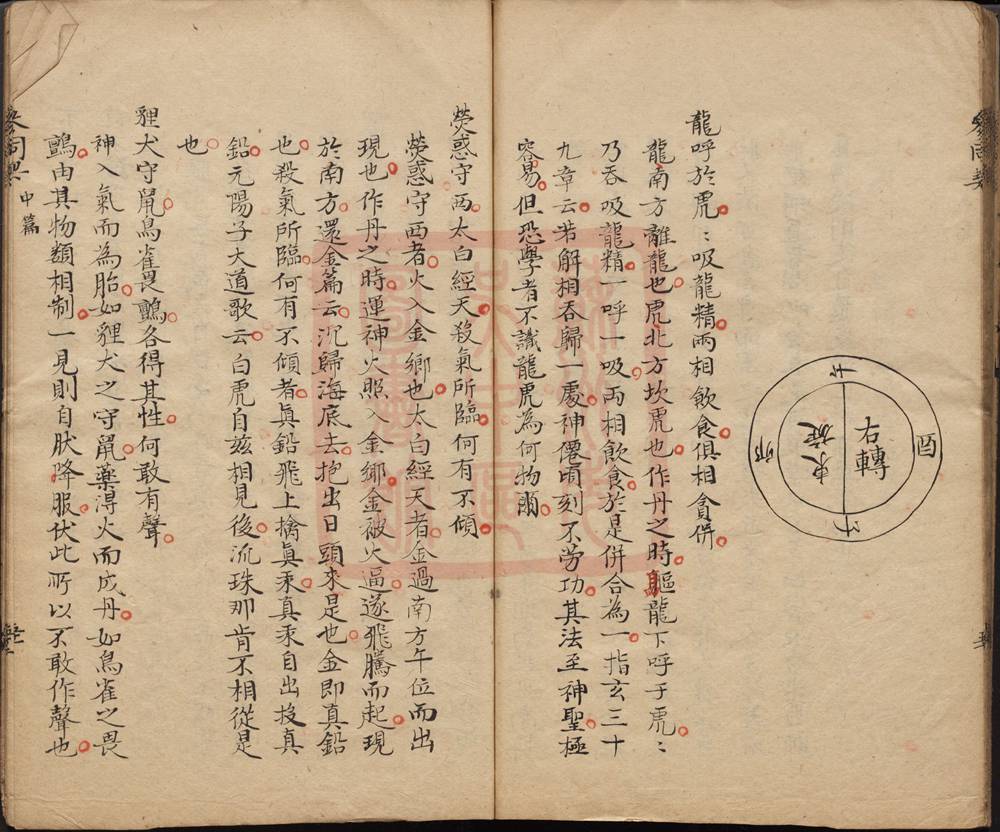 酉
右轉
東旋
卯
午
龍呼於虎：吸龍精兩相飲食俱相貪併
龍南方離龍也虎北方坎虎也作丹之時驅龍下呼于虎：
乃吞吸龍精一呼一吸兩相飲食於是併合為一指玄三十
九章云若解相吞歸一處神僊頃刻不勞功其法至神聖極
容易但恐學者不識龍虎為何物爾
熒惑守西太白經天殺氣所臨何有不傾
熒惑守西者火入金鄉也太白經天者金過南方午位而出
現也作丹之時運神火照入金鄉金被火逼遂飛騰而起現
於南方還金篇云沉歸海底去抱出日頭來是也金即真鉛
也殺氣所臨何有不傾者真鉛飛上擒真汞真汞自出投真
鉛元陽子大道歌云白虎自茲相見後流珠那肯不相從是
也
貍犬守鼠鳥雀畏鸇各得其性何敢有聲
神入氣而為胎如貍犬之守鼠藥得火而成丹如鳥雀之畏
鸇由其物類相制一見則自伏降服伏此所以不敢作聲也
參同契 中篇